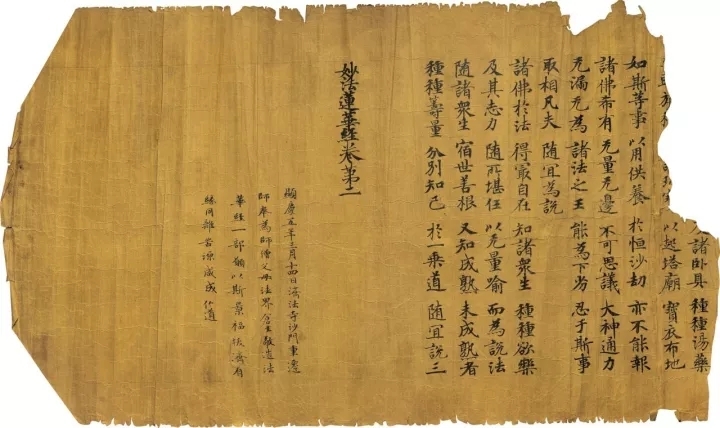 諸卧具 種種湯藥
以起塔廟 寶衣布地
如斯等事 以用供養 於恒沙劫 亦不能報
諸佛希有 无量无邊 不可思議 大神通力
无漏无為 諸法之王 能為下劣 忍于斯事
取相凡夫 随冝為說
諸佛於法 得冣自在 知諸衆生 種種欲樂
及其志力 随所堪任 以无量喻 而為說法
随諸衆生 宿世善根 又知成熟 未成熟者
種種籌量 分別知已 於一乗道 随冝說三
妙法蓮華經卷第二
顯慶五年三月十四日濟法寺沙門重遷
師奉為師僧父母法界含生敬造法
華經一部願以斯景福拔濟有
緣同離苦源咸成仏道